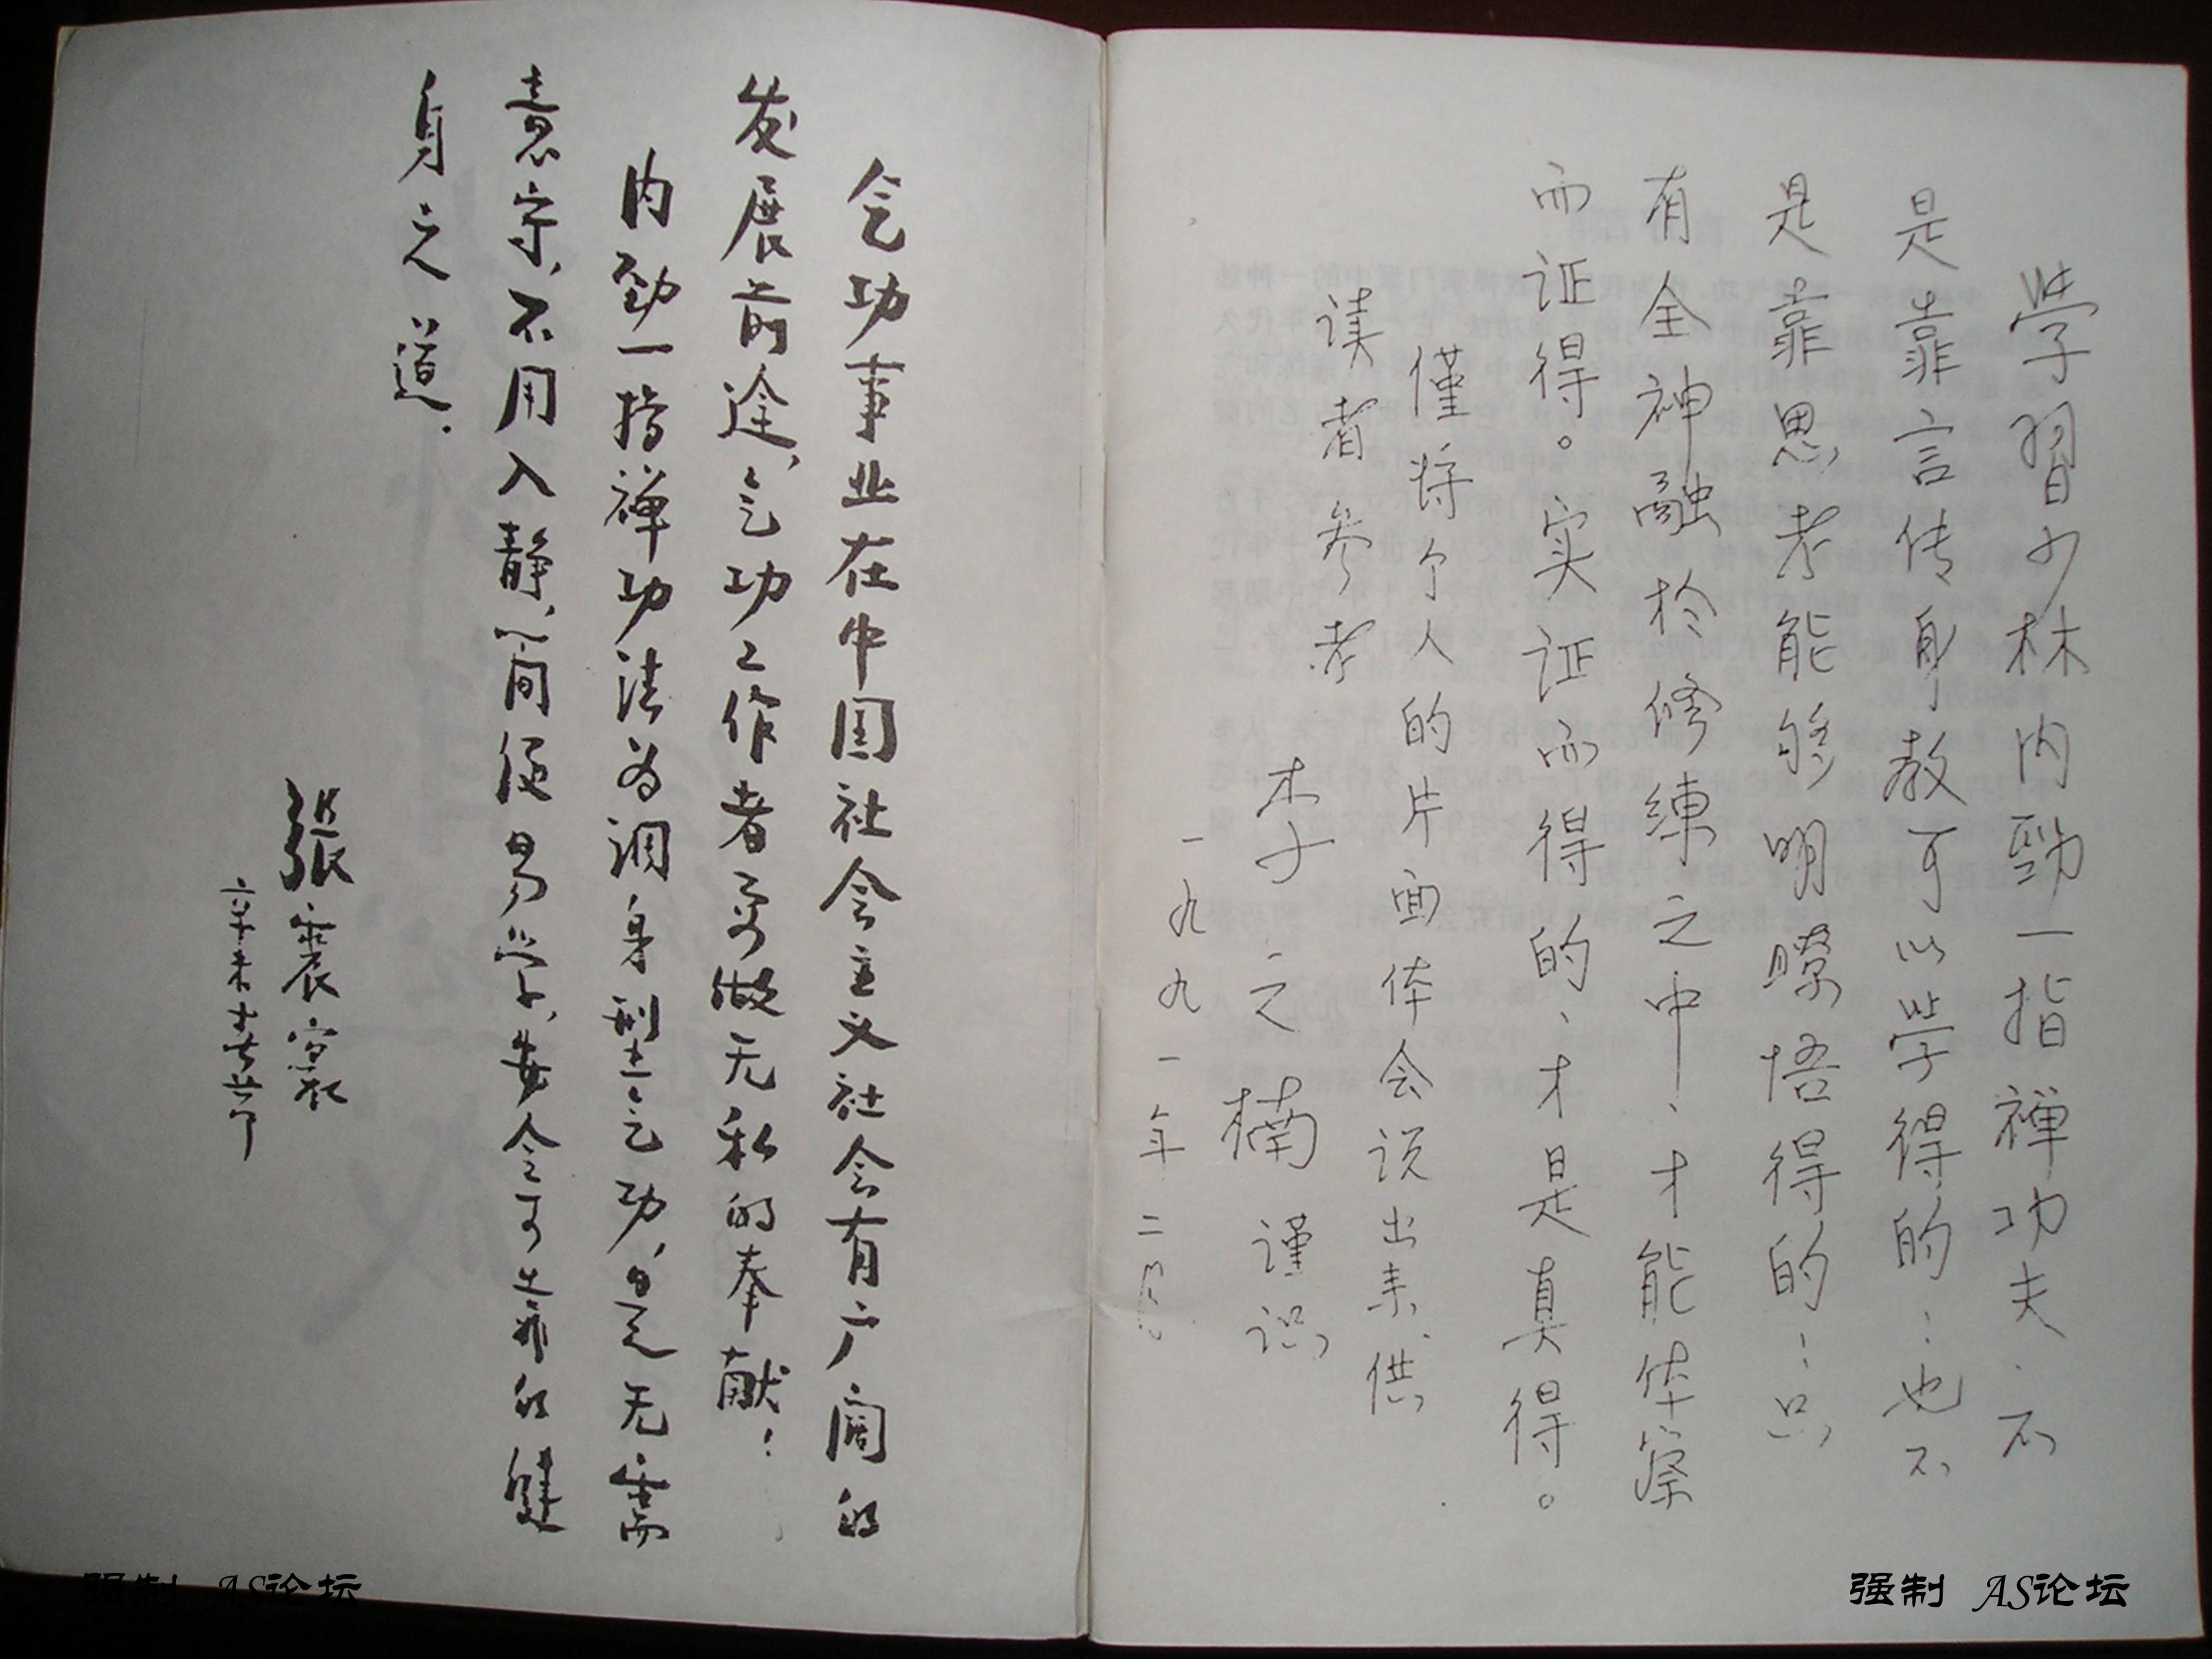 学習少林内勁一指禅功夫.不
是靠言传身教可以学得的：也不
是靠思考能够明瞭悟得的：只
有全神融於修練之中、才能体察
而证得。实证而得的、才是真得。
僅将个人的片面体会说出来.供
读者参考
李之楠 谨识
一九九一年二月
气功事业在中国社会主义社会有广阔的
发展前途,气功工作者要做无私的奉献!
内劲一指禅功法为调身型之气功,是无需
意守,不用入静,简便易学,安全可靠的健
身之道.
張震寰
辛未
强制 AS论坛
强制 AS论坛